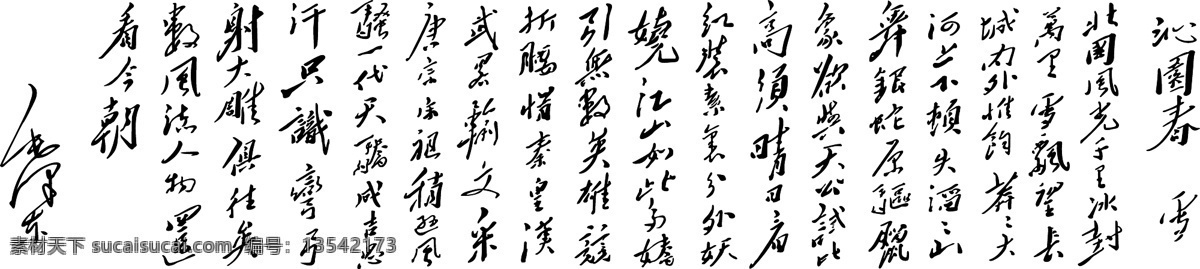 沁園春 雪
北國風光千里冰封
萬里雪飄望長
城内外惟餘莽〻大
河上下頓失滔〻山
舞銀蛇原驅臘
象欲與天公試比
高須晴日看
紅裝素裹分外妖
嬈江山如此多嬌
引無數英雄競
折腰惜秦皇漢
武略輸文采
唐宗宋祖稍遜風
騷一代天驕成吉思
汗只識彎弓
射大雕俱往矣
數風流人物還
看今朝
毛澤東
素材天下 sucaisucai.com 编号：13542173